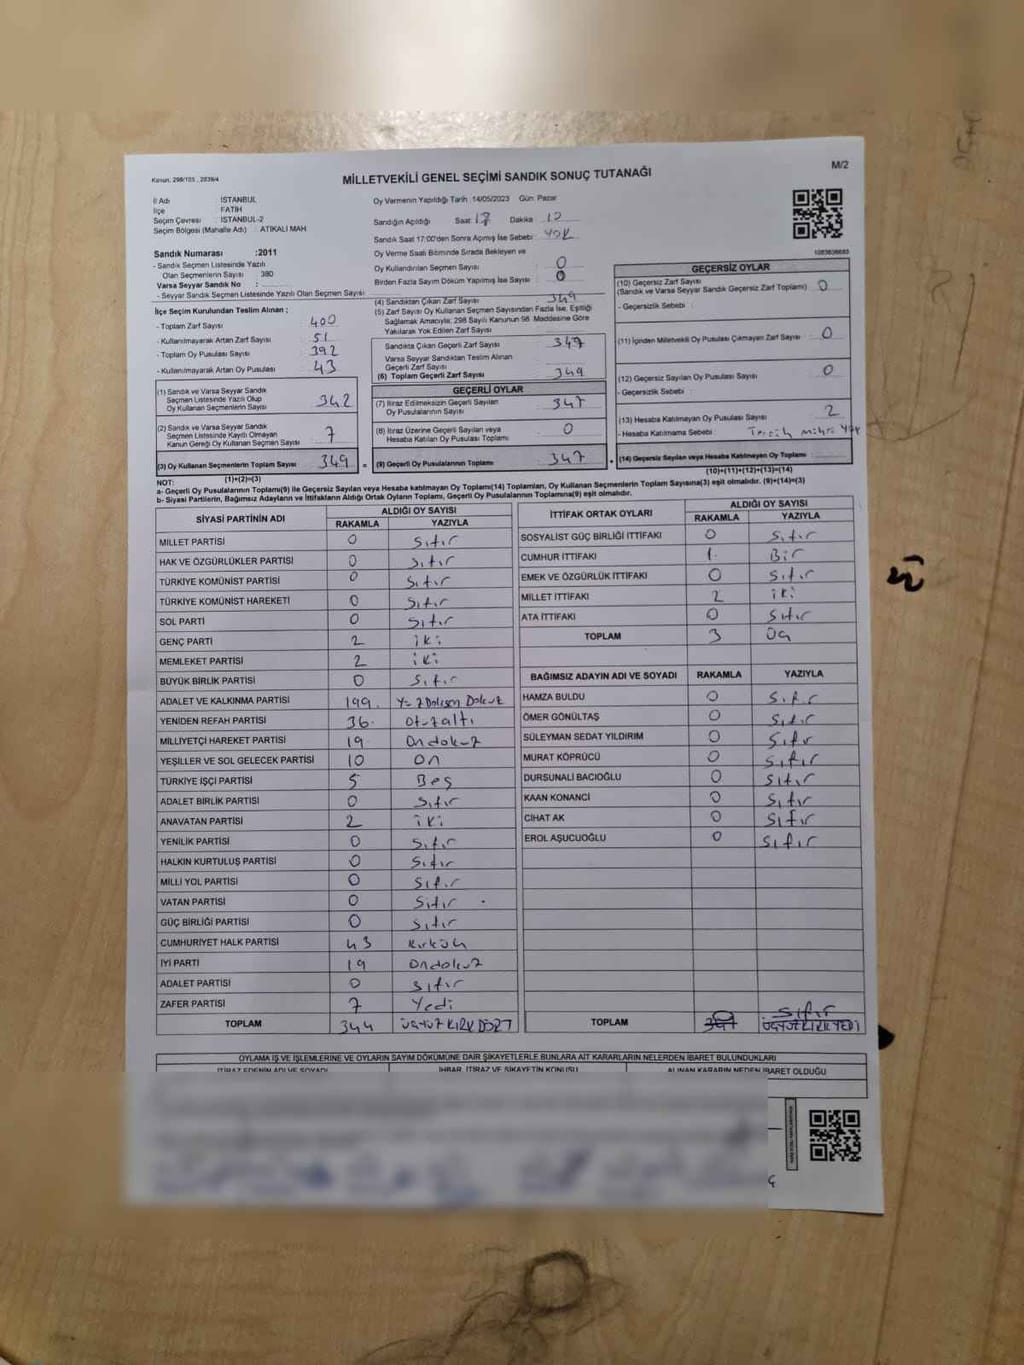 Kanun: 298/105 , 2839/4
MİLLETVEKİLİ GENEL SEÇİMİ SANDIK SONUÇ TUTANAĞI
M/2
İl Adı : İSTANBUL
İlçe : FATİH
Seçim Çevresi : İSTANBUL-2
Seçim Bölgesi (Mahalle Adı) : ATİKALİ MAH
Oy Vermenin Yapıldığı Tarih :14/05/2023 Gün: Pazar
Sandığın Açıldığı Saat 17 Dakika 12
Sandık Saat 17:00'den Sonra Açılmış İse Sebebi: YOK
Oy Verme Saati Bitiminde Sırada Bekleyen ve
Oy Kullandırılan Seçmen Sayısı 0
Birden Fazla Sayım Döküm Yapılmış İse Sayısı : 0
1083636683
Sandık Numarası :2011
- Sandık Seçmen Listesinde Yazılı
Olan Seçmenlerin Sayısı : 380
Varsa Seyyar Sandık No :
- Seyyar Sandık Seçmen Listesinde Yazılı Olan Seçmen Sayısı
İlçe Seçim Kurulundan Teslim Alınan ;
- Toplam Zarf Sayısı : 400
- Kullanılmayarak Artan Zarf Sayısı : 51
- Toplam Oy Pusulası Sayısı : 392
- Kullanılmayarak Artan Oy Pusulası : 43
(1) Sandık ve Varsa Seyyar Sandık
Seçmen Listesinde Yazılı Olup
Oy Kullanan Seçmenlerin Sayısı 342
(2) Sandık ve Varsa Seyyar Sandık
Seçmen Listesinde Kayıtlı Olmayan
Kanun Gereği Oy Kullanan Seçmen Sayısı 7
(3) Oy Kullanan Seçmenlerin Toplam Sayısı 349
(1)+(2)=(3)
(4) Sandıktan Çıkan Zarf Sayısı 349
(5) Zarf Sayısı Oy Kullanan Seçmen Sayısından Fazla İse, Eşitliği
Sağlamak Amacıyla, 298 Sayılı Kanunun 98. Maddesine Göre
Yakılarak Yok Edilen Zarf Sayısı
Sandıkta Çıkan Geçerli Zarf Sayısı 349
Varsa Seyyar Sandıktan Teslim Alınan
Geçerli Zarf Sayısı
(6) Toplam Geçerli Zarf Sayısı 349
GEÇERLİ OYLAR
(7) İtiraz Edilmeksizin Geçerli Sayılan
Oy Pusulalarının Sayısı 347
(8) İtiraz Üzerine Geçerli Sayılan veya
Hesaba Katılan Oy Pusulası Toplamı 0
= (9) Geçerli Oy Pusulalarının Toplamı 347
GEÇERSİZ OYLAR
(10) Geçersiz Zarf Sayısı
(Sandık ve Varsa Seyyar Sandık Geçersiz Zarf Toplamı) 0
- Geçersizlik Sebebi :
(11) İçinden Milletvekili Oy Pusulası Çıkmayan Zarf Sayısı 0
(12) Geçersiz Sayılan Oy Pusulası Sayısı 0
- Geçersizlik Sebebi :
(13) Hesaba Katılmayan Oy Pusulası Sayısı 2
- Hesaba Katılmama Sebebi : Tercih mührü yok
+ (14) Geçersiz Sayılan veya Hesaba Katılmayan Oy Toplamı
(10)+(11)+(12)+(13)=(14)
NOT:
a- Geçerli Oy Pusulalarının Toplamı(9) ile Geçersiz Sayılan veya Hesaba katılmayan Oy Toplamı(14) Toplamları, Oy Kullanan Seçmenlerin Toplam Sayısına(3) eşit olmalıdır. (9)+(14)=(3)
b- Siyasi Partilerin, Bağımsız Adayların ve İttifakların Aldığı Ortak Oyların Toplamı, Geçerli Oy Pusulalarının Toplamına(9) eşit olmalıdır.
SİYASİ PARTİNİN ADI ALDIĞI OY SAYISI
RAKAMLA YAZIYLA
MİLLET PARTİSİ 0 Sıfır
HAK VE ÖZGÜRLÜKLER PARTİSİ 0 Sıfır
TÜRKİYE KOMÜNİST PARTİSİ 0 Sıfır
TÜRKİYE KOMÜNİST HAREKETİ 0 Sıfır
SOL PARTİ 0 Sıfır
GENÇ PARTİ 2 iki
MEMLEKET PARTİSİ 2 iki
BÜYÜK BİRLİK PARTİSİ 0 Sıfır
ADALET VE KALKINMA PARTİSİ 199 Yüzdoksan Dokuz
YENİDEN REFAH PARTİSİ 36 Otuzaltı
MİLLİYETÇİ HAREKET PARTİSİ 19 Ondokuz
YEŞİLLER VE SOL GELECEK PARTİSİ 10 On
TÜRKİYE İŞÇİ PARTİSİ 5 Beş
ADALET BİRLİK PARTİSİ 0 Sıfır
ANAVATAN PARTİSİ 2 iki
YENİLİK PARTİSİ 0 Sıfır
HALKIN KURTULUŞ PARTİSİ 0 Sıfır
MİLLİ YOL PARTİSİ 0 Sıfır
VATAN PARTİSİ 0 Sıfır
GÜÇ BİRLİĞİ PARTİSİ 0 Sıfır
CUMHURİYET HALK PARTİSİ 43 Kırküç
İYİ PARTİ 19 Ondokuz
ADALET PARTİSİ 0 Sıfır
ZAFER PARTİSİ 7 Yedi
TOPLAM 344 ÜÇYÜZ KIRK DÖRT
İTTİFAK ORTAK OYLARI ALDIĞI OY SAYISI
RAKAMLA YAZIYLA
SOSYALİST GÜÇ BİRLİĞİ İTTİFAKI 0 Sıfır
CUMHUR İTTİFAKI 1 Bir
EMEK VE ÖZGÜRLÜK İTTİFAKI 0 Sıfır
MİLLET İTTİFAKI 2 iki
ATA İTTİFAKI 0 Sıfır
TOPLAM 3 Üç
BAĞIMSIZ ADAYIN ADI VE SOYADI RAKAMLA YAZIYLA
HAMZA BULDU 0 Sıfır
ÖMER GÖNÜLTAŞ 0 Sıfır
SÜLEYMAN SEDAT YILDIRIM 0 Sıfır
MURAT KÖPRÜCÜ 0 Sıfır
DURSUNALİ BACIOĞLU 0 Sıfır
KAAN KONANCİ 0 Sıfır
CİHAT AK 0 Sıfır
EROL AŞUCUOĞLU 0 Sıfır
Sıfır
TOPLAM 347 ÜÇYÜZ KIRK YEDİ
OYLAMA İŞ VE İŞLEMLERİNE VE OYLARIN SAYIM DÖKÜMÜNE DAİR ŞİKAYETLERLE BUNLARA AİT KARARLARIN NELERDEN İBARET BULUNDUKLARI
İTİRAZ EDENİN ADI VE SOYADI İHBAR, İTİRAZ VE ŞİKAYETİN KONUSU ALINAN KARARIN NEDEN İBARET OLDUĞU